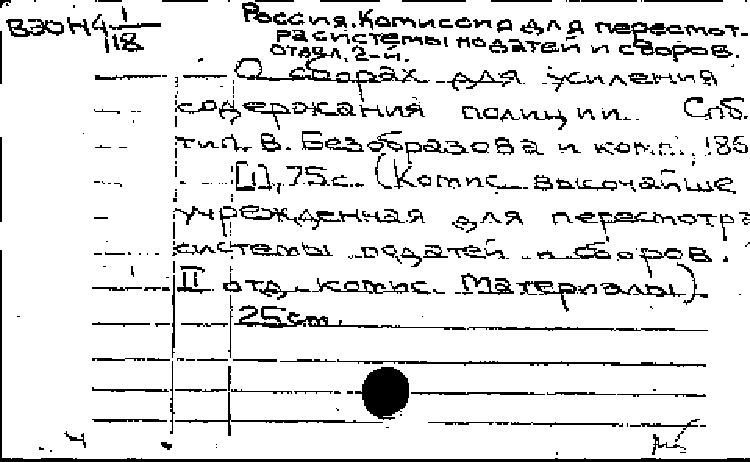 ВЭОН4 1/118
Россия. Комиссия для пересмот-
ра системы податей и сборов.
Отдел. 2-й.
О сборах для усиления
содержания полиции. Спб.
тип. В. Безобразова и комп., 186
[1], 75с. (Комис. высочайше
учрежденная для пересмотра
системы податей и сборов.
II отд. комис. Материалы)
25см.